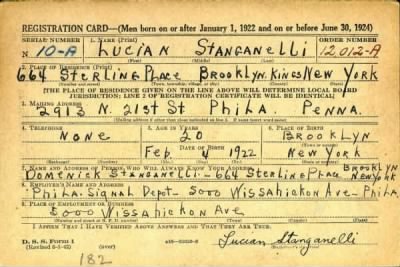 REGISTRATION CARD—(Men born on or after January 1, 1922 and on or before June 30, 1924)
SERIAL NUMBER 1. NAME (Print) ORDER NUMBER
N 10-A LUCIAN STANGANELLI 12012-A
(First) (Middle) (Last)
2. PLACE OF RESIDENCE (Print)
664 STERLING PLACE BROOKLYN, KINGS NEW YORK
[THE PLACE OF RESIDENCE GIVEN ON THE LINE ABOVE WILL DETERMINE LOCAL BOARD
JURISDICTION; LINE 2 OF REGISTRATION CERTIFICATE WILL BE IDENTICAL]
3. MAILING ADDRESS
2913 N. 21ST ST PHILA. PENNA.
[Mailing address if other than place indicated on line 2. If same insert word same]
4. TELEPHONE 5. AGE IN YEARS 6. PLACE OF BIRTH
NONE 20 BROOKLYN
DATE OF BIRTH
Feb 4 1922 NEW YORK
7. NAME AND ADDRESS OF PERSON WHO WILL ALWAYS KNOW YOUR ADDRESS
DOMENICK STANGANELLI - 664 STERLING PLACE BROOKLYN NEW YORK
8. EMPLOYER'S NAME AND ADDRESS
PHILA SIGNAL DEPOT - 5000 WISSAHICKON AVE - PHILA
9. PLACE OF EMPLOYMENT OR BUSINESS
5000 WISSAHICKON AVE
I AFFIRM THAT I HAVE VERIFIED ABOVE ANSWERS AND THAT THEY ARE TRUE.
D. S. S. Form 1
Lucian Stanganelli
182